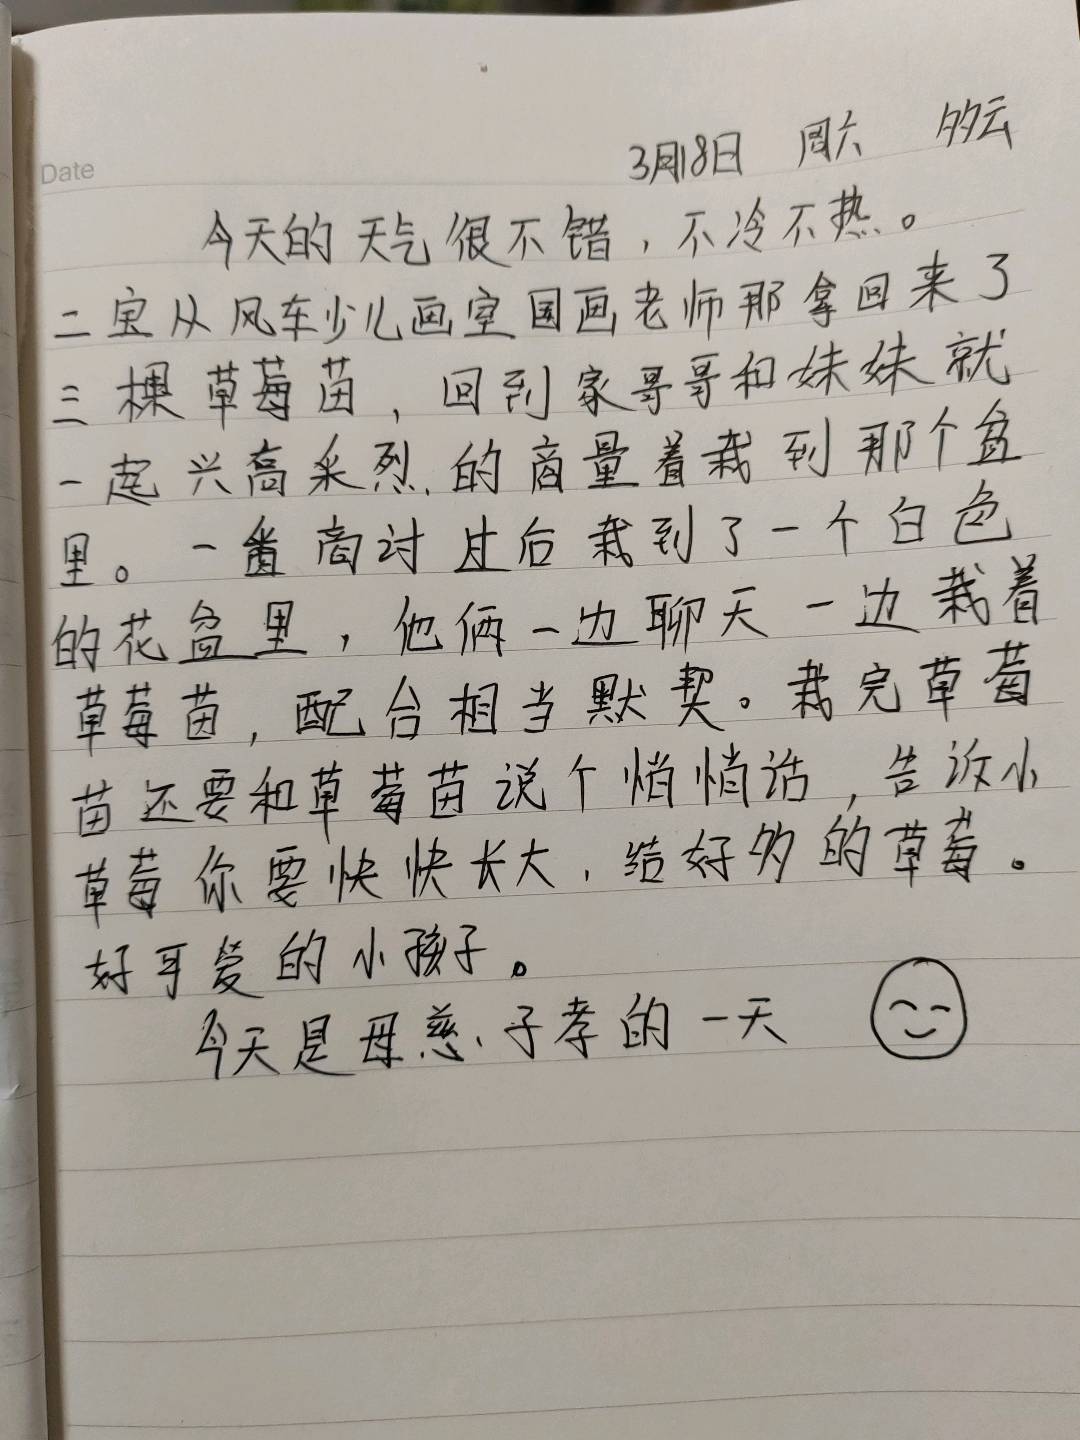 Date
3月18日 周六 多云
今天的天气很不错，不冷不热。
二宝从风车少儿画室国画老师那拿回来了
三棵草莓苗，回到家哥哥和妹妹就
一起兴高采烈的商量着栽到那个盆
里。一番商讨过后栽到了一个白色
的花盆里，他俩一边聊天一边栽着
草莓苗，配合相当默契。栽完草莓
苗还要和草莓苗说个悄悄话，告诉小
草莓你要快快长大，结好多的草莓。
好可爱的小孩子。
今天是母慈、子孝的一天